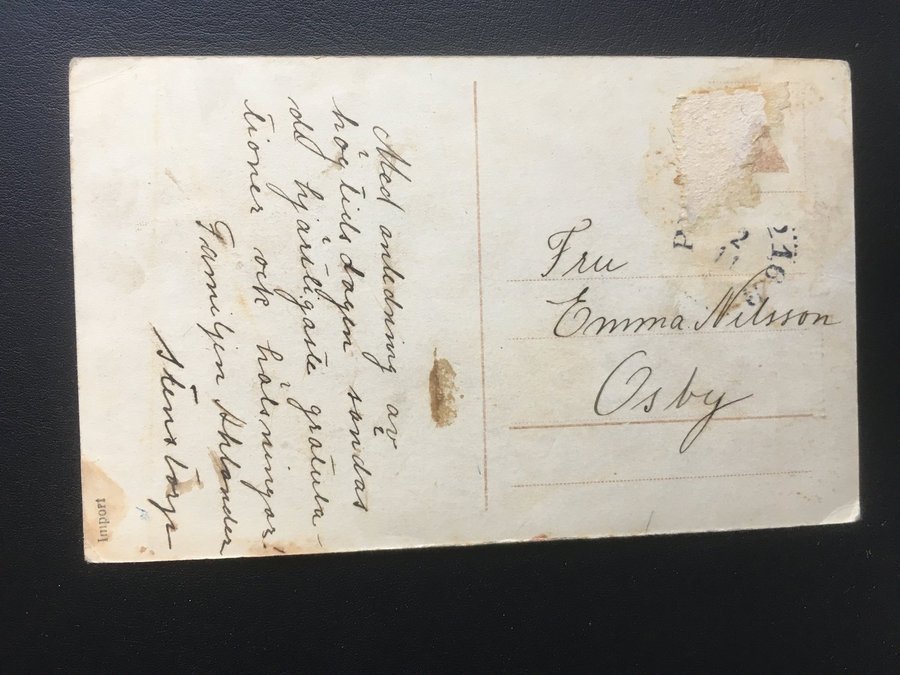 Med anledning av
högtidsdagen sändas
de hjärtligaste gratula-
tioner och hälsningar!
Familjen Ahlander
Stenstorp
Fru
Emma Nilsson
Osby
Import